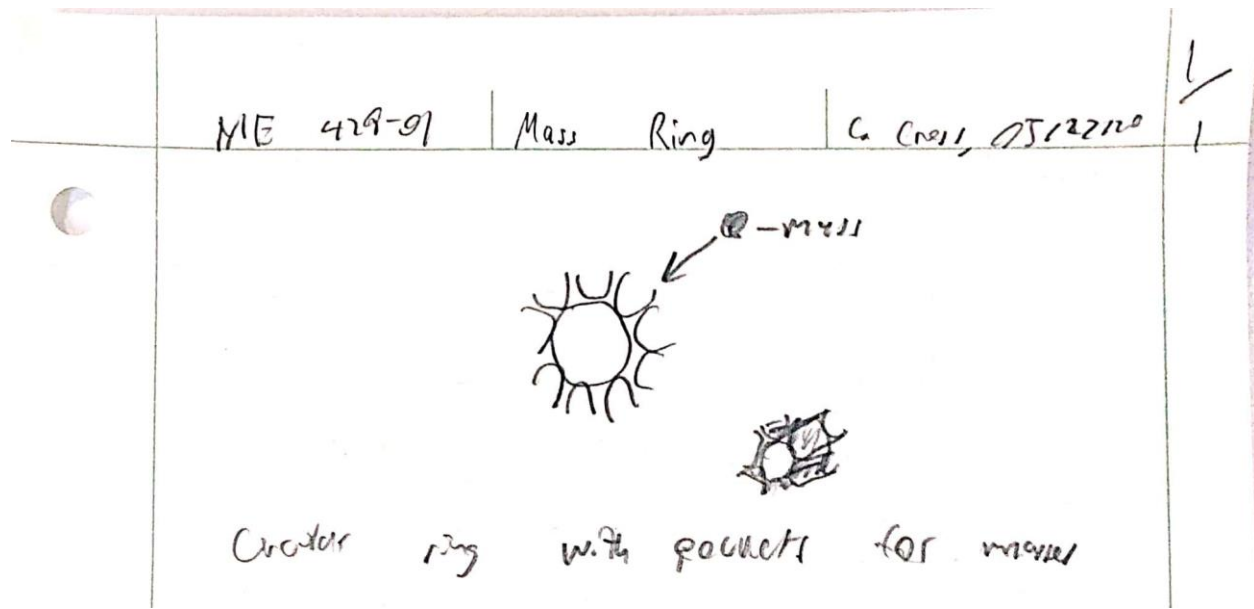 1/1
ME 428-01 Mass Ring C. Cross, 05/22/20
-mass
Circular ring with pockets for masses